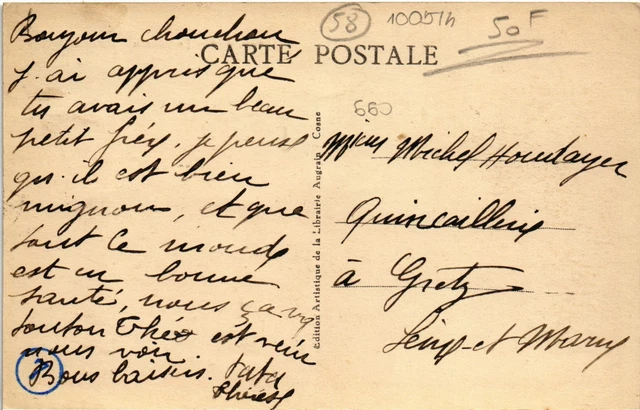 58 10051h 50F
CARTE POSTALE
660
Bonjour chouchou
j'ai appris que
tu avais un beau
petit frère, je pense
qu'il est bien
mignon, et que
tout le monde
est en bonne
santé, nous ça va
tonton Théo est venu
nous voir.
Bons baisers. Tata
Thérèse
Edition Artistique de la Librairie Augrain Cosne
Michel Houdayer
Quincaillerie
à Gretz
Seine-et-Marne